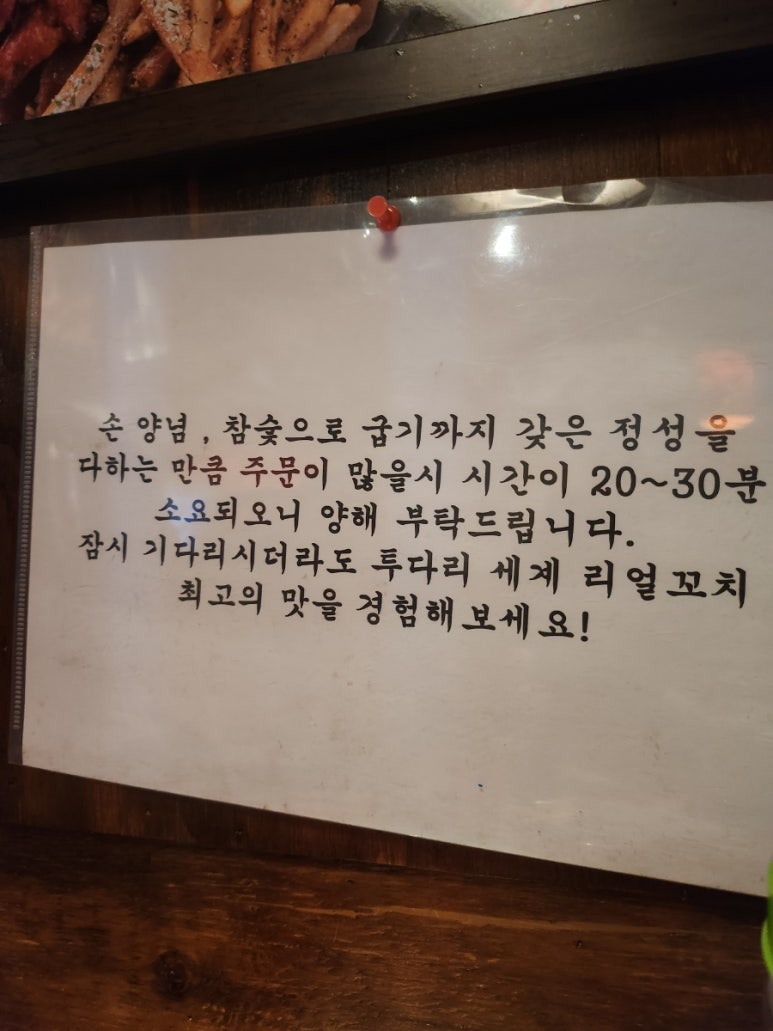 손 양념, 참숯으로 굽기까지 갖은 정성을
다하는 만큼 주문이 많을시 시간이 20~30분
소요되오니 양해 부탁드립니다.
잠시 기다리시더라도 투다리 세계 리얼꼬치
최고의 맛을 경험해보세요!